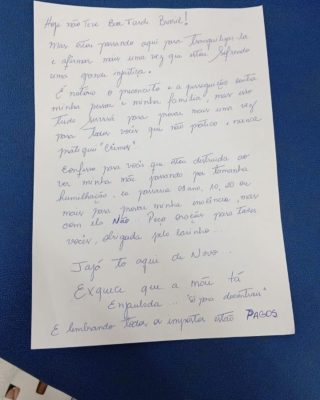 Hoje não teve Boa Tarde Brasil!
Mas estou passando aqui para tranquilizar-los
e afirmar mais uma vez que estou sofrendo
uma grande injustiça.
É notório o preconceito e a perseguição contra
minha pessoa e minha família, mas isso
tudo servirá para provar mais uma vez
para todos vocês que não pratico e nunca
pratiquei "Crimes".
Confesso para vocês que estou destruída ao
ver minha mãe passando por tamanha
humilhação, eu passaria 01 ano, 10, 20 ou
mais para provar minha inocência, mas
com ela Não. Peço orações para todos
vocês, obrigada pelo carinho...
Jajá to aqui de Novo...
Exquece que a mãe tá
Enjaulada... "Só para descontrair"
E lembrando todos os impostos estão PAGOS.